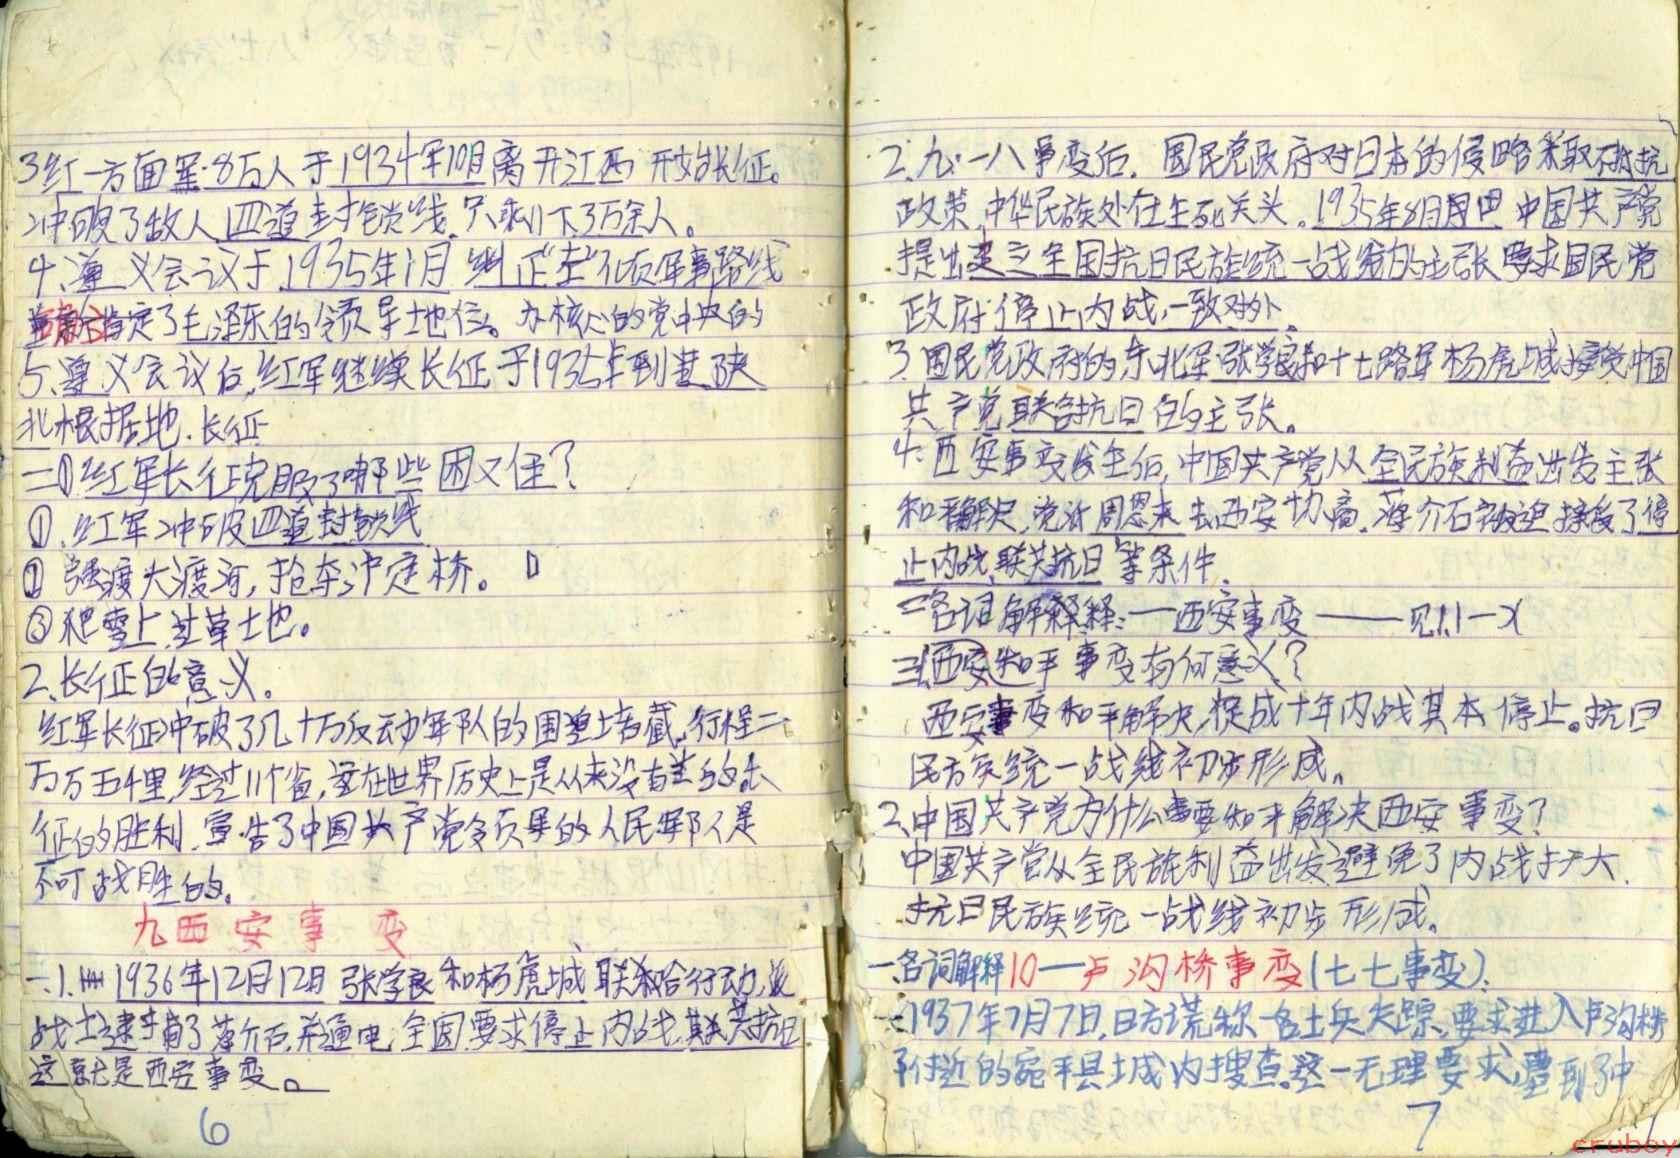 3红一方面军8万人于1934年10月离开江西开始长征。
冲破了敌人四道封锁线,只剩下3万余人。
4、遵义会议于1935年1月纠正"左"倾军事路线
肯定了毛泽东的领导地位。为核心的党中央的
5、遵义会议后,红军继续长征于1935年到达陕
北根据地.长征
二①红军长征克服了哪些困又住?
①.红军冲破四道封锁线
② 强渡大渡河,抢夺泸定桥。
③爬雪山过草土地。
2、长征的意义。
红军长征冲破了几十万反动军队的围追堵截,行程二
万万五千里,经过11个省,这在世界历史上是从来没有过的长
征的胜利.宣告了中国共产党领导的人民军队是
不可战胜的。
九西安事变
一.1. 1936年12月12日张学良和杨虎城联合行动,
战士逮捕了蒋介石,并通电全国要求停止内战,联共抗日
这就是西安事变。
6
2.九·一八事变后.国民党政府对日本的侵略采取不抵抗
政策,中华民族处在生死关头。1935年8月中国共产党
提出建立全国抗日民族统一战线的主张要求国民党
政府停止内战,一致对外。
3、国民党政府的东北军张学良和十七路军杨虎城接受中国
共产党联合抗日的主张。
4.西安事变发生后,中国共产党从全民族利益出发主张
和平解决,党派周恩来去西安协商.蒋介石被迫接受了停
止内战,联共抗日等条件.
二各词解释:一西安事变——见1.1一
三1西安和平事变有何意义?
西安事变和平解决,促成十年内战基本停止。抗日
民族统一战线初步形成。
2、中国共产党为什么要和平解决西安事变?
中国共产党从全民族利益出发避免了内战扩大.
抗日民族统一战线初步形成。
一.各词解释10一卢沟桥事变(七七事变).
一1937年7月7日,日方谎称一名士兵失踪,要求进入卢沟桥
附近的宛平县城内搜查,这一无理要求,遭到了中
7
cruboy